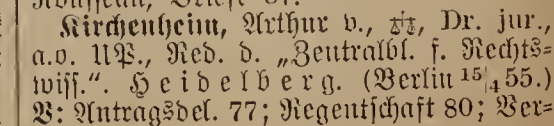 Kirchenheim, Arthur v., Dr. jur.,
a.o. UP., Red. d. „Zentralbl. f. Rechts=
wiss.“. Heidelberg. (Berlin 15/4 55.)
V: Antragsdel. 77; Regentschaft 80; Ver=